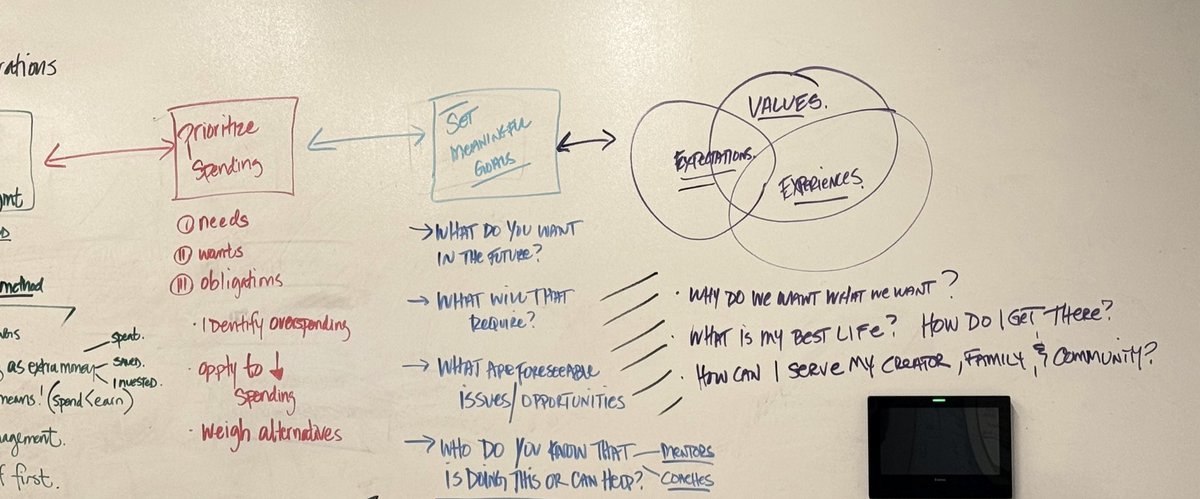 rations
gmt
method
as extra money
spent.
SAVED.
INVESTED.
means! (spend < earn)
agement.
f first.
Prioritize
Spending
I needs
II wants
III obligations
· Identify overspending
· apply to ↓
Spending
· weigh alternatives
SET
MEANINGFUL
GOALS
→ WHAT DO YOU WANT
IN THE FUTURE?
→ WHAT WILL THAT
REQUIRE?
→ WHAT ARE FORESEEABLE
ISSUES/OPPORTUNITIES
→ WHO DO YOU KNOW THAT
IS DOING THIS OR CAN HELP?
MENTORS
COACHES
VALUES.
EXPECTATIONS.
EXPERIENCES.
· WHY DO WE WANT WHAT WE WANT?
· WHAT IS MY BEST LIFE? HOW DO I GET THERE?
· HOW CAN I SERVE MY CREATOR, FAMILY, & COMMUNITY?